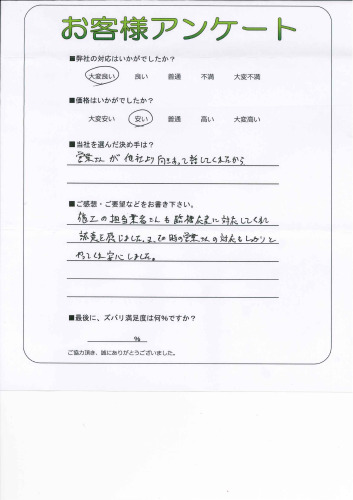 お客様アンケート
■弊社の対応はいかがでしたか?
大変良い 良い 普通 不満 大変不満
■価格はいかがでしたか?
大変安い 安い 普通 高い 大変高い
■当社を選んだ決め手は?
営業さんが他社より向き合って話してくれたから
■ご感想・ご要望などをお書き下さい。
施工の担当業者さんも臨機応変に対応してくれて
誠意を感じました。 の営業さんの対応もしっかりと
やってくれ安心しました。
■最後に、ズバリ満足度は何%ですか?
%
ご協力頂き、誠にありがとうございました。